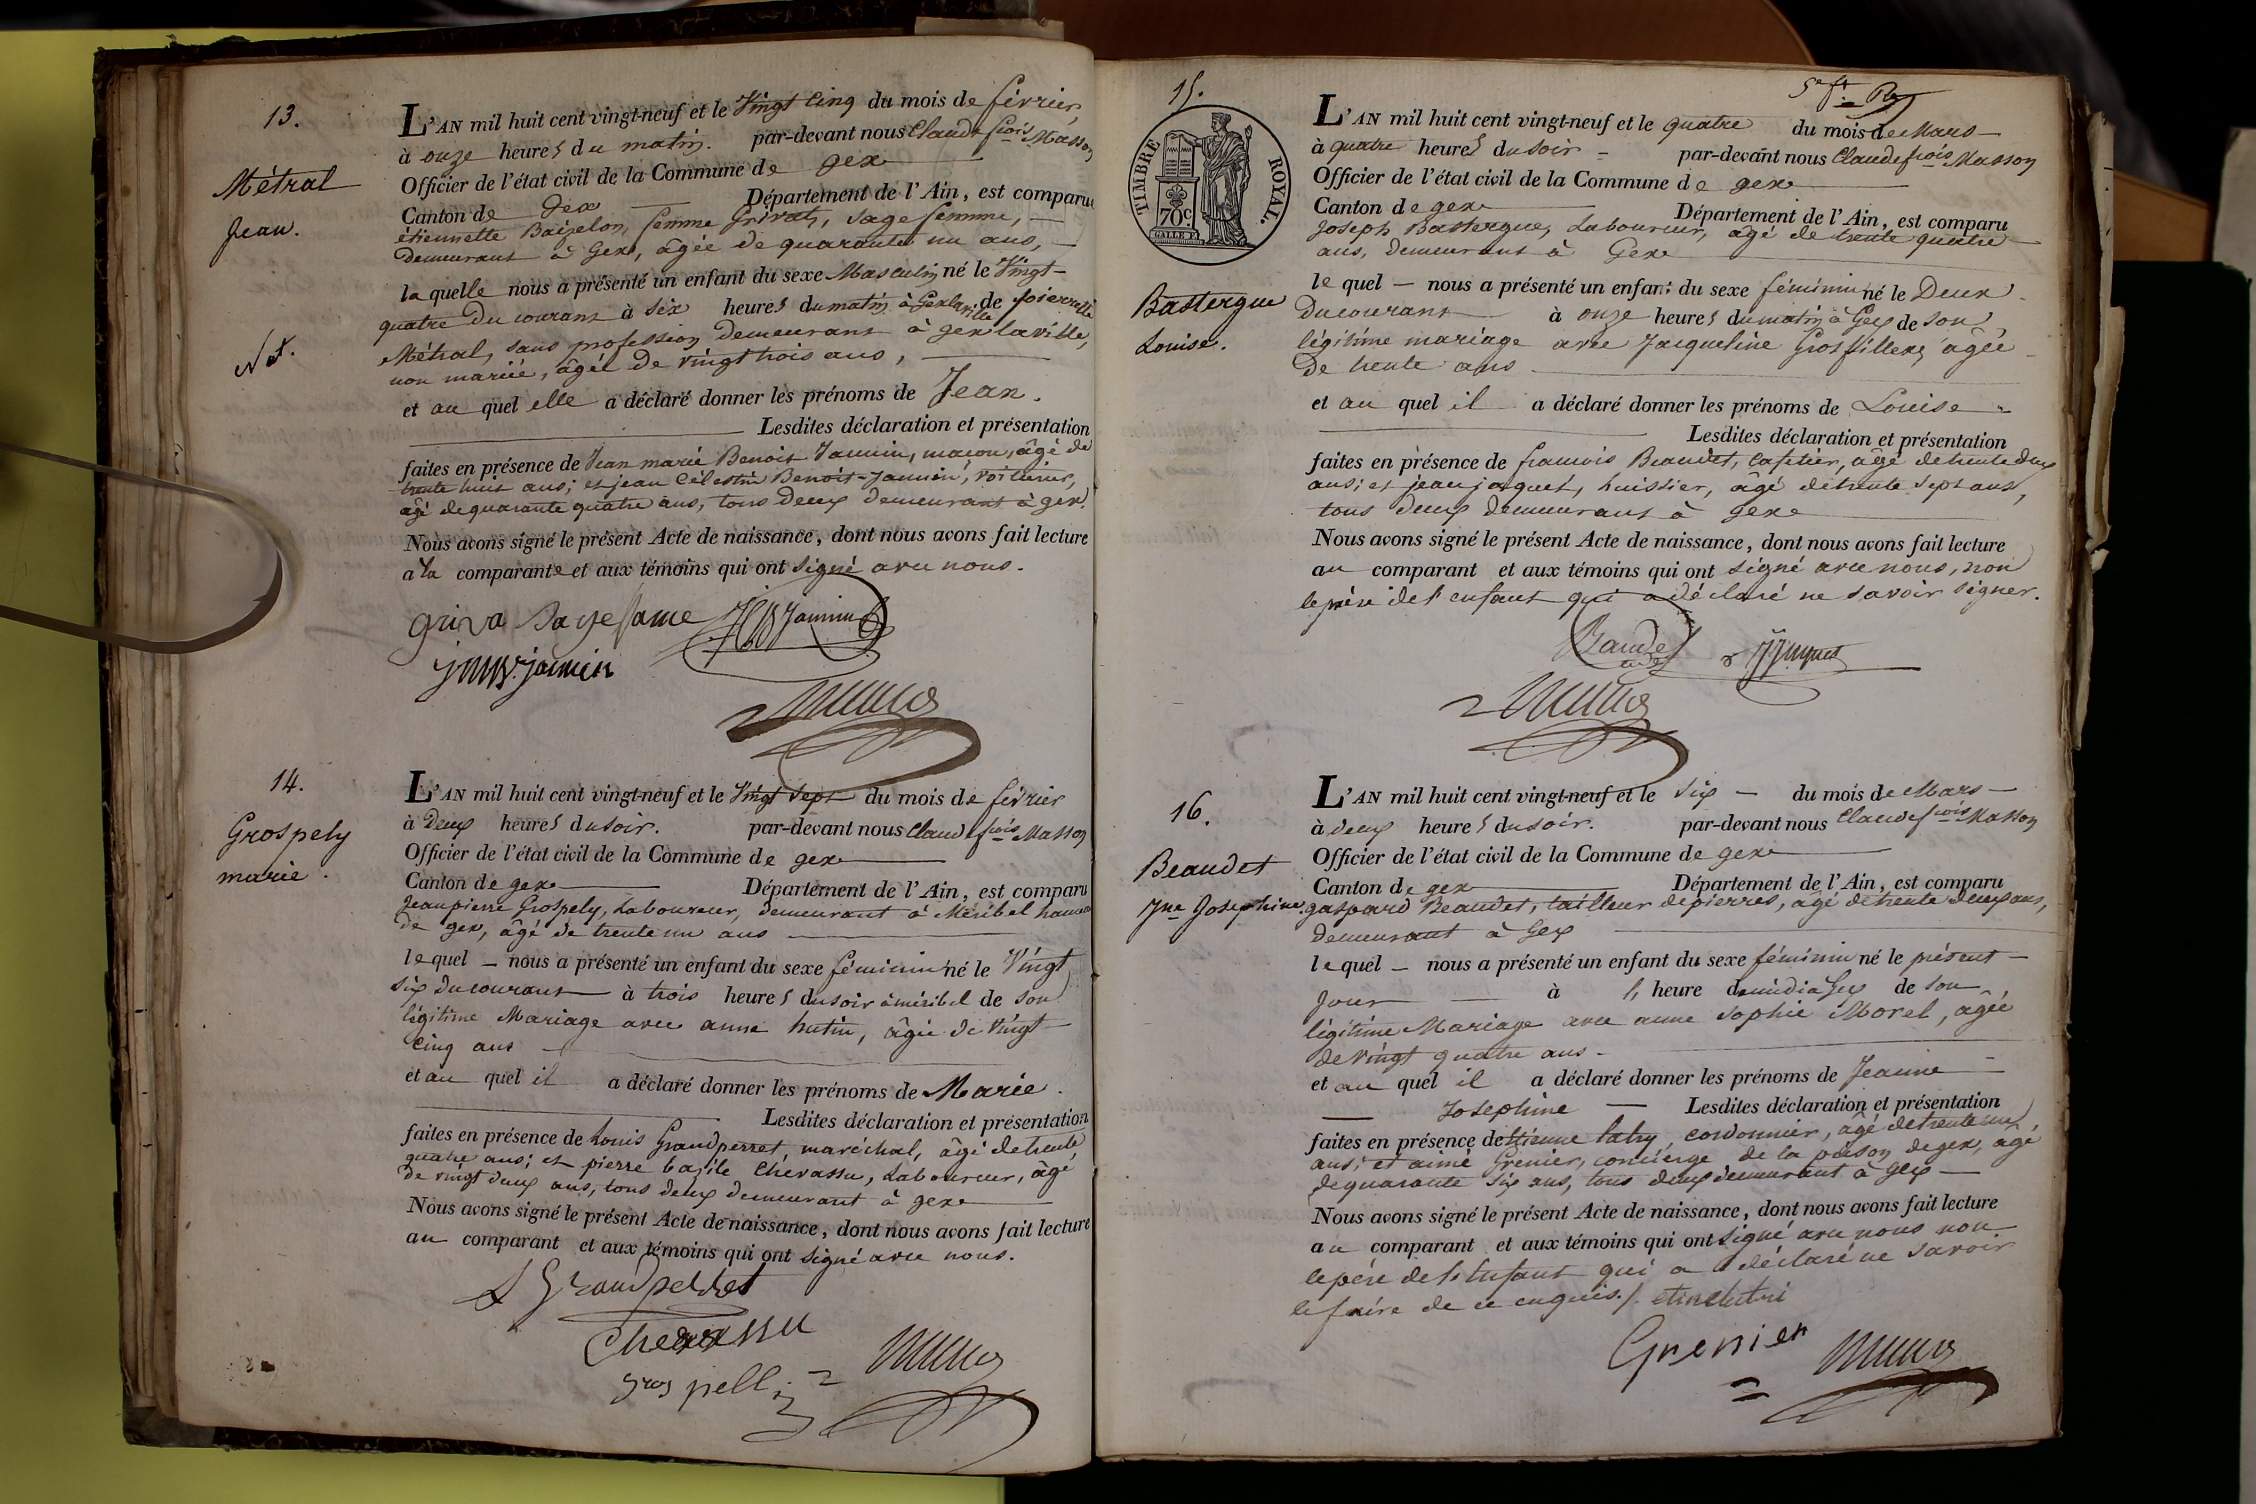 13.
Métral
Jean.
Nat.
L'AN mil huit cent vingt-neuf et le Vingt Cinq du mois de février
à onze heures du matin. par-devant nous Claude fcois Masson
Officier de l'état civil de la Commune de gex
Canton de Gex Département de l'Ain, est comparu
étiennette Baizelon, femme Grivat, sage femme,
demeurant à Gex, âgée de quarante un ans,
laquelle nous a présenté un enfant du sexe Masculin né le Vingt-
quatre du courant à six heures du matin à Gex la ville de pierrette
Métral, sans profession demeurant à gex la ville,
non mariée, âgée de vingt trois ans,
et au quel elle a déclaré donner les prénoms de Jean.
Lesdites déclaration et présentation
faites en présence de Jean marie Benoit Jannin, maçon, âgé de
trente huit ans; et jean Célestin Benoit-Jannin, voiturier,
âgé de quarante quatre ans, tous deux demeurant à gex.
Nous avons signé le présent Acte de naissance, dont nous avons fait lecture
a la comparante et aux témoins qui ont signé avec nous.
griva Sagefame
14.
Grospely
marie.
L'AN mil huit cent vingt-neuf et le Vingt sept du mois de février
à Deux heures du soir. par-devant nous Claude fcois Masson
Officier de l'état civil de la Commune de gex
Canton de gex Département de l'Ain, est comparu
Jean pierre Grospely, Laboureur, demeurant à Méribel hameau
de gex, âgé de trente un ans
le quel nous a présenté un enfant du sexe féminin né le Vingt
six du courant à trois heures du soir à méribel de son
légitime Mariage avec anne hutin, âgée de Vingt
cinq ans
et au quel il a déclaré donner les prénoms de Marie.
Lesdites déclaration et présentation
faites en présence de Louis Grandperret, maréchal, âgé de trente
quatre ans; et pierre bazile Chevassu, Laboureur, âgé
de vingt deux ans, tous deux demeurant à gex
Nous avons signé le présent Acte de naissance, dont nous avons fait lecture
au comparant et aux témoins qui ont signé avec nous.
L Grandperret
Chevassu
gros pelli
15.
TIMBRE ROYAL.
70c.
Bastergue
Louise.
L'AN mil huit cent vingt-neuf et le quatre du mois de Mars
à quatre heures du soir par-devant nous Claude fcois Masson
Officier de l'état civil de la Commune de gex
Canton de gex Département de l'Ain, est comparu
Joseph Bastergue, Laboureur, âgé de trente quatre
ans, demeurant à Gex
le quel nous a présenté un enfant du sexe féminin né le Deux
du courant à onze heures du matin à Gex de son
légitime mariage avec Jacqueline Grosfillex, âgée
de trente ans
et au quel il a déclaré donner les prénoms de Louise
Lesdites déclaration et présentation
faites en présence de francois Beaudet, Cafetier, âgé de trente deux
ans; et jean jaquet, huissier, âgé de trente sept ans,
tous deux demeurant à gex
Nous avons signé le présent Acte de naissance, dont nous avons fait lecture
au comparant et aux témoins qui ont signé avec nous, non
le père de l'enfant qui a déclaré ne savoir signer.
16.
Beaudet
Jne Josephine.
L'AN mil huit cent vingt-neuf et le six du mois de Mars
à deux heures du soir. par-devant nous Claude fcois Masson
Officier de l'état civil de la Commune de gex
Canton de gex Département de l'Ain, est comparu
gaspard Beaudet, tailleur de pierres, âgé de trente deux ans,
demeurant à Gex
le quel nous a présenté un enfant du sexe féminin né le présent
jour à l, heure de midi à Gex de son
légitime Mariage avec anne sophie Morel, âgée
de vingt quatre ans
et au quel il a déclaré donner les prénoms de Jeanne
Josephine Lesdites déclaration et présentation
faites en présence de Etienne cordonnier, âgé de trente un
ans; et aimé Grenier, concierge de la prison de gex, âgé
de quarante six ans, tous deux demeurant à Gex
Nous avons signé le présent Acte de naissance, dont nous avons fait lecture
au comparant et aux témoins qui ont signé avec nous non
le père de l'enfant qui a déclaré ne savoir
le faire de ce enquis./.
Grenier